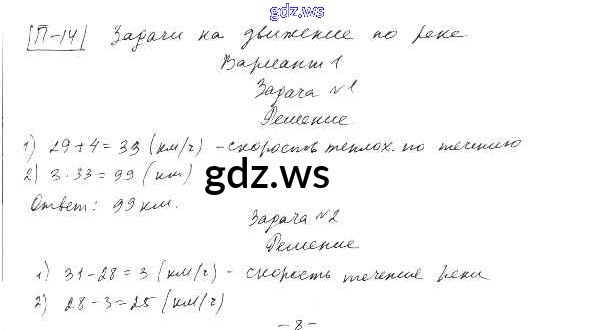 gdz.ws
П-14 Задачи на движение по реке
Вариант 1
Задача №1
Решение
1) 29+4=33 (км/ч) - скорость теплох. по течению
2) 3·33=99 (км)
gdz.ws
Ответ: 99 км.
Задача №2
Решение
1) 31-28=3 (км/ч) - скорость течение реки
2) 28-3=25 (км/ч)
-8-